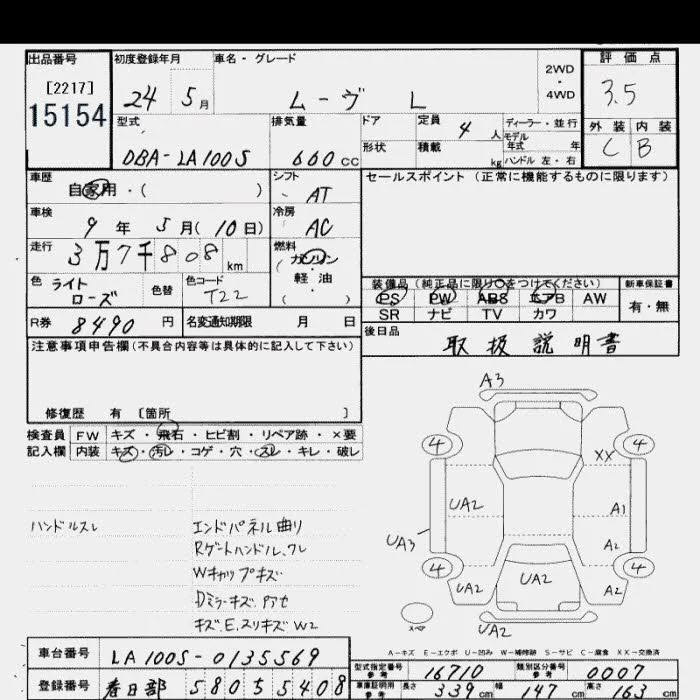 出品番号 初度登録年月 車名・グレード 2WD・4WD 評価点
[2217]
15154 24 5月 ムーヴ L 3.5
型式 排気量 ドア 定員 4人 ディーラー・並行 外装 内装
モデル年式 年
DBA-LA100S 660cc 形状 積載 kg ハンドル 左・右 C B
車歴 自家用・( ) シフト AT セールスポイント (正常に機能するものに限ります)
車検 9年 5月(10日) 冷房 AC
走行 3万7千808km 燃料 ガソリン
軽・油
( )
色 ライトローズ 色替 色コード T22 装備品(純正品に限り○をつけてください) 新車保証書
PS PW ABS エアB AW 有・無
SR ナビ TV カワ
R券 8490円 名変通知期限 月 日 後日品
取扱説明書
注意事項申告欄(不具合内容等は具体的に記入して下さい)
修復歴 有 [箇所 ]
検査員 FW キズ・飛石・ヒビ割・リペア跡・×要
記入欄 内装 キズ・汚レ・コゲ・穴・スレ・キレ・破レ
ハンドルスレ エンドパネル曲り
Rゲートハンドル、ワレ
Wキャップキズ
Dミラーキズ
キズ.E.スリキズ W2
A3
4 4
XX
UA2 A1
UA3 A2
4 4
UA2 UA2 A2
スペア UA2
A-キズ E-エクボ U-凹み W-補修跡 S-サビ C-腐食 XX-交換済
車台番号 LA100S-0135569 型式指定番号 参考 16710 類別区分番号 参考 0007
登録番号 春日部 580 55408 車庫証明用 参考 長さ 339cm 幅 147cm 高さ 163cm